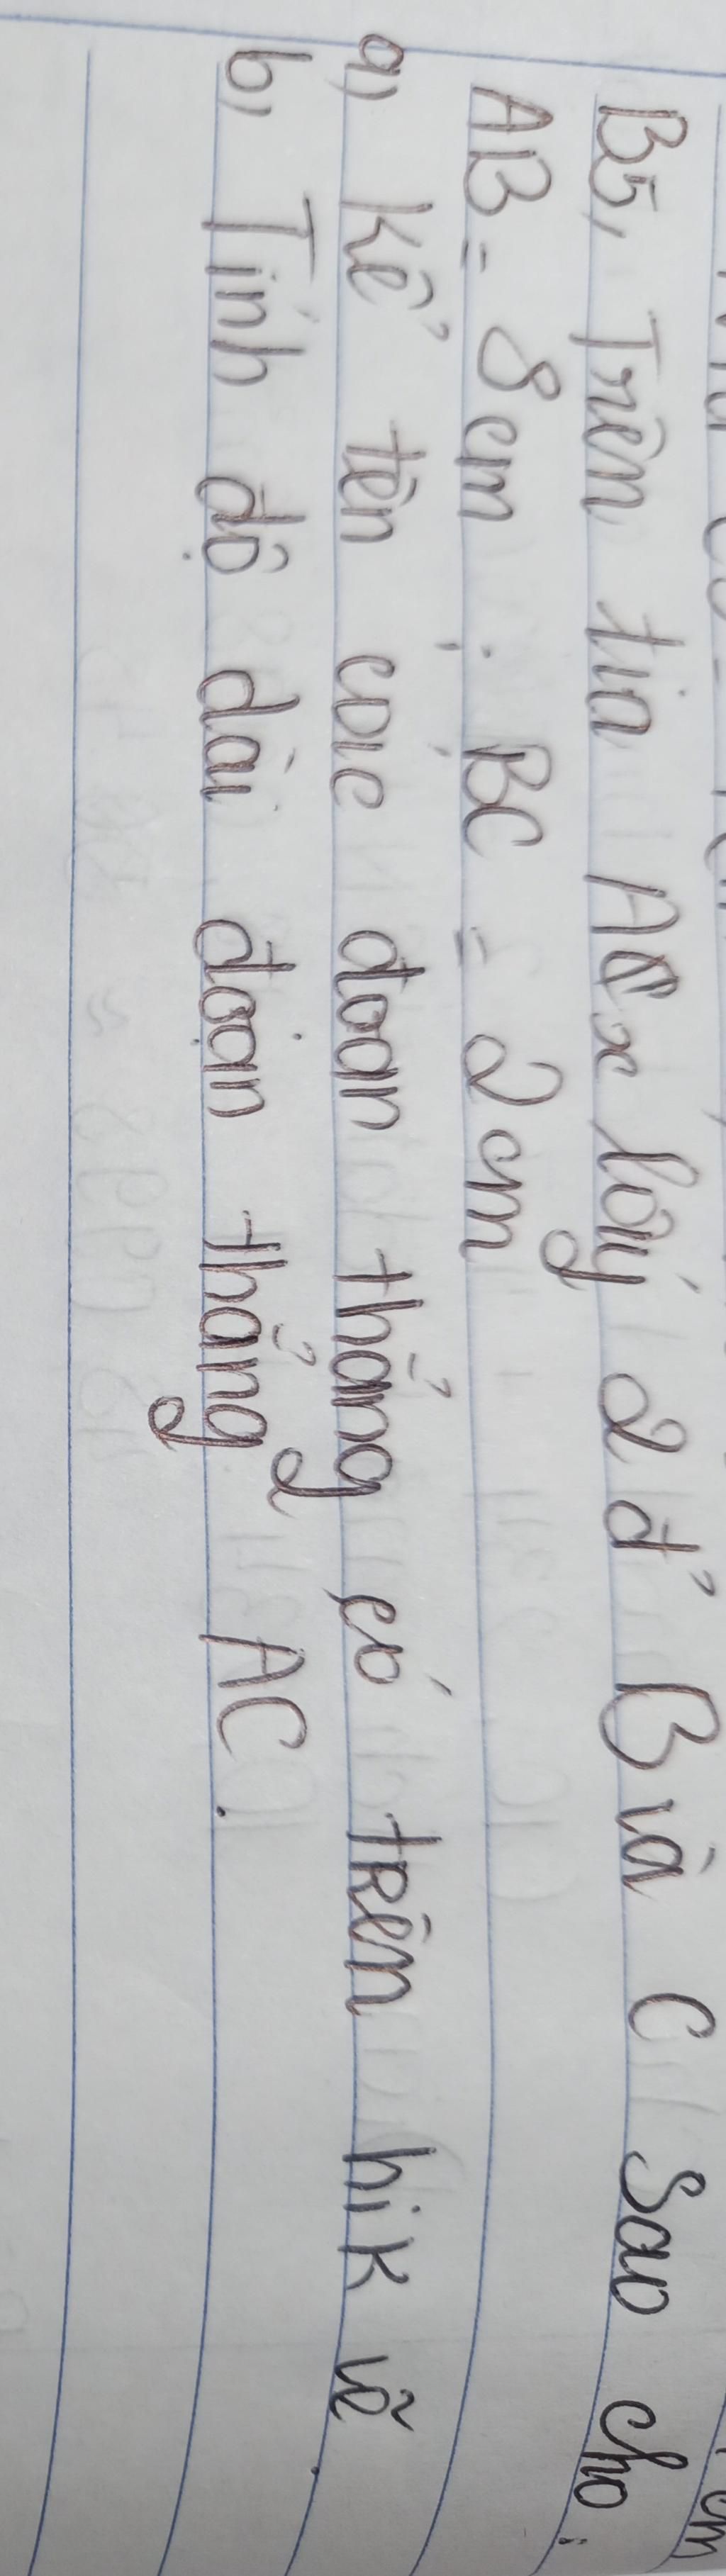 B5, Trên tia Ax lấy 2 đ' B và C sao cho:
AB = 8cm ; BC = 2cm
a, Kể tên các đoan thẳng có trên hik vẽ.
b, Tính độ dài đoạn thẳng AC.